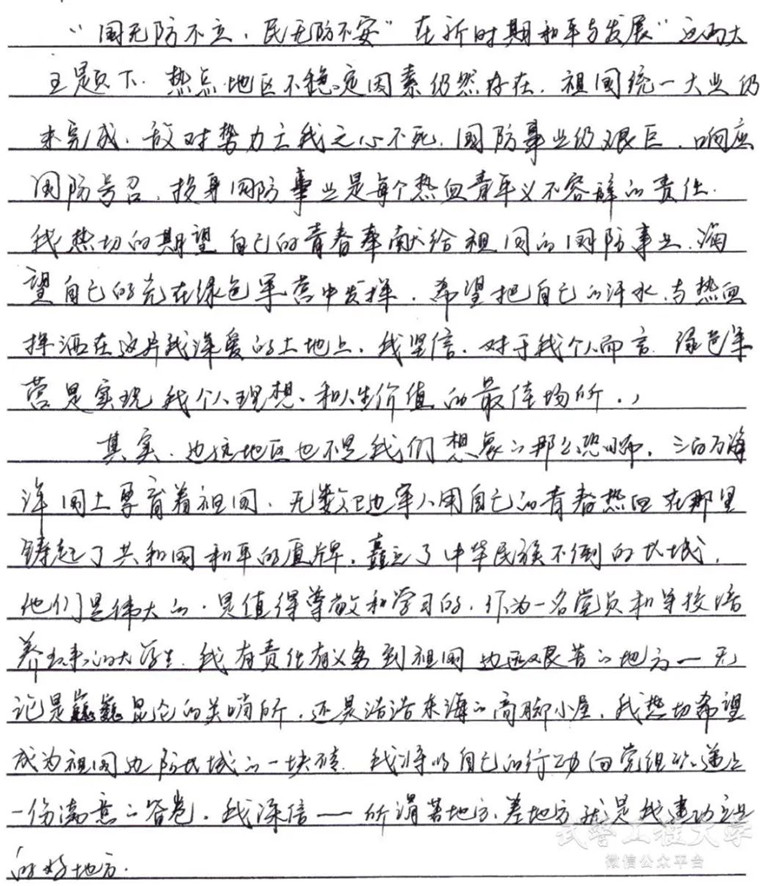 “国无防不立，民无防不安”在新时期和平与发展“这两大
主题下．热点地区不稳定因素仍然存在．祖国统一大业仍
未完成．敌对势力亡我之心不死．国防事业仍艰巨．响应
国防号召．投身国防事业是每个热血青年义不容辞的责任．
我热切的期望自己的青春奉献给祖国的国防事业．渴
望自己的光在绿色军营中发挥．希望把自己的汗水与热血
挥洒在这片我深爱的土地上．我坚信．对于我个人而言．绿色军
营是实现我个人理想、和人生价值的最佳场所．
其实．边远地区也不是我们想象的那么恐怖．三百万海
洋国土孕育着祖国．无数卫边军人用自己的青春热血在那里
铸起了共和国和平的盾牌．矗立了中华民族不倒的长城．
他们是伟大的．是值得尊敬和学习的．作为一名党员和军校培
养出来的大学生．我有责任有义务到祖国边远艰苦的地方一无
论是巍巍昆仑的关哨所．还是浩浩东海的高脚小屋．我热切希望
成为祖国边防长城的一块砖．我将以自己的行动向党组织递上
一份满意的答卷．我深信——所谓苦地方．差地方就是我建功立业
的好地方．
武警工程大学
微信公众平台